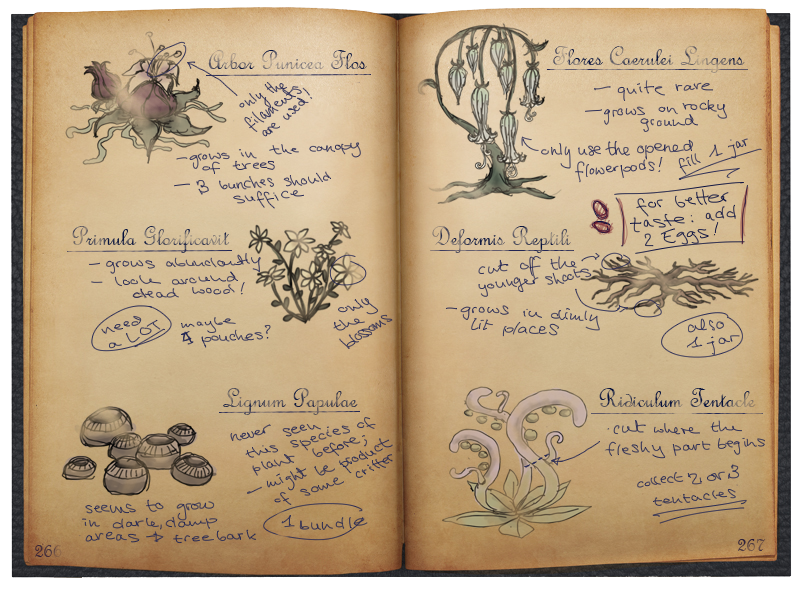 Arbor Punicea Flos
only the
filaments
are used!
- grows in the canopy
of trees
- 3 bunches should
suffice
Primula Glorificavit
- grows abundantly
- look around
dead wood!
need
a LOT
maybe
4 pouches?
only
the
blossoms
Lignum Papulae
never seen
this species of
plant before;
- might be product
of some critter
seems to grow
in dark, damp
areas → tree bark
1 bundle
266
Flores Caerulei Lingens
- quite rare
- grows on rocky
ground
only use the opened
flowerpods!
fill 1 jar
for better
taste: add
2 Eggs!
Deformis Reptili
cut off the
younger shoots
- grows in dimly
lit places
also
1 jar
Ridiculum Tentacle
· cut where the
fleshy part begins
collect 2 or 3
tentacles
267